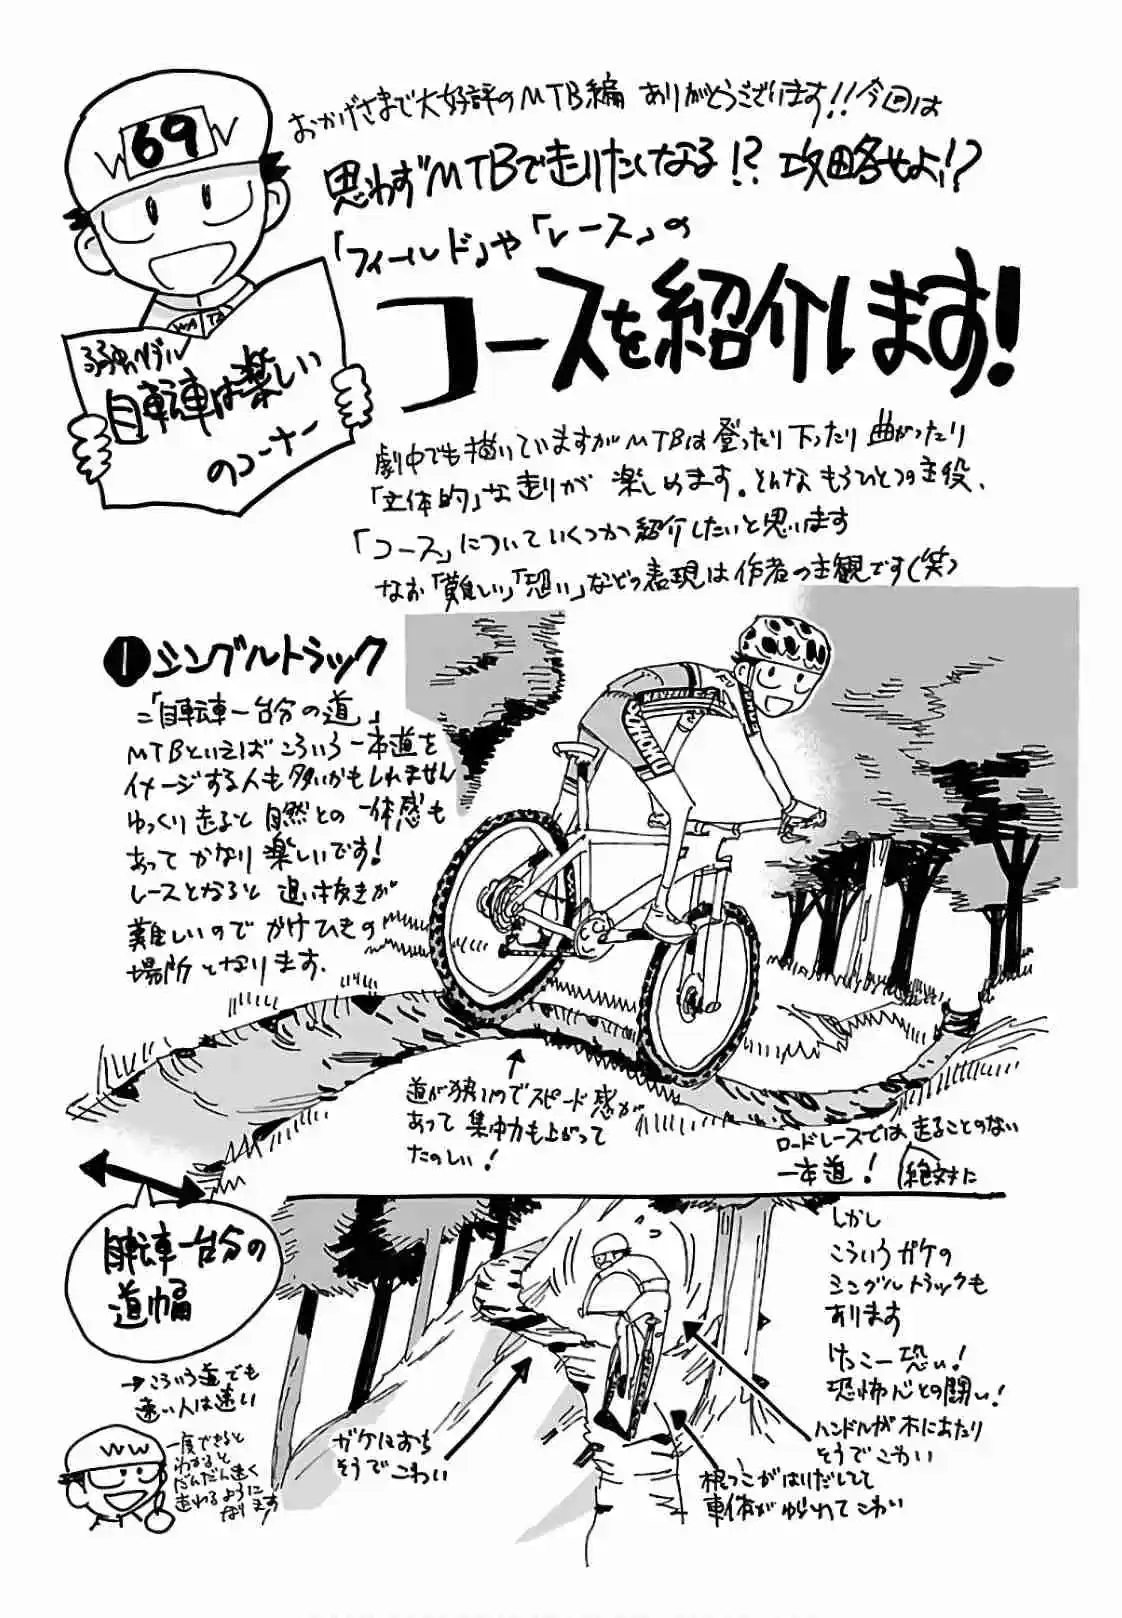 おかげさまで大好評のMTB編 ありがとうございます!!今回は
思わずMTBで走りたくなる!? 攻略せよ!?
「フィールド」や「レース」の
コースを紹介します!
69
弱虫ペダル
自転車は楽しい
のコーナー
劇中でも描いていますがMTBは登ったり下ったり曲がったり
「立体的」な走りが楽しめます。そんなもうひとつの主役、
「コース」についていくつかご紹介したいと思います
なお「難しい」「恐い」などの表現は作者の主観です(笑)
❶シングルトラック
=「自転車一台分の道」
MTBといえばこういう一本道を
イメージする人も多いかもしれません
ゆっくり走ると自然との一体感も
あってかなり楽しいです!
レースとなると追い抜きが
難しいのでかけひきの
場所となります.
道が狭いのでスピード感が
あって集中力も上がって
たのしい!
ロードレースでは走ることのない
一本道!
絶対に
自転車一台分の
道幅
→こういう道でも
速い人は速い
WW
一度できると
わかると
だんだん速く
走れるように
なります
しかし
こういうガケの
シングルトラックも
あります
けっこー恐い!
恐怖心との闘い!
ハンドルが木にあたり
そうでこわい
ガケにおち
そうでこわい
根っこがはりだしてて
車体がゆられてこわい